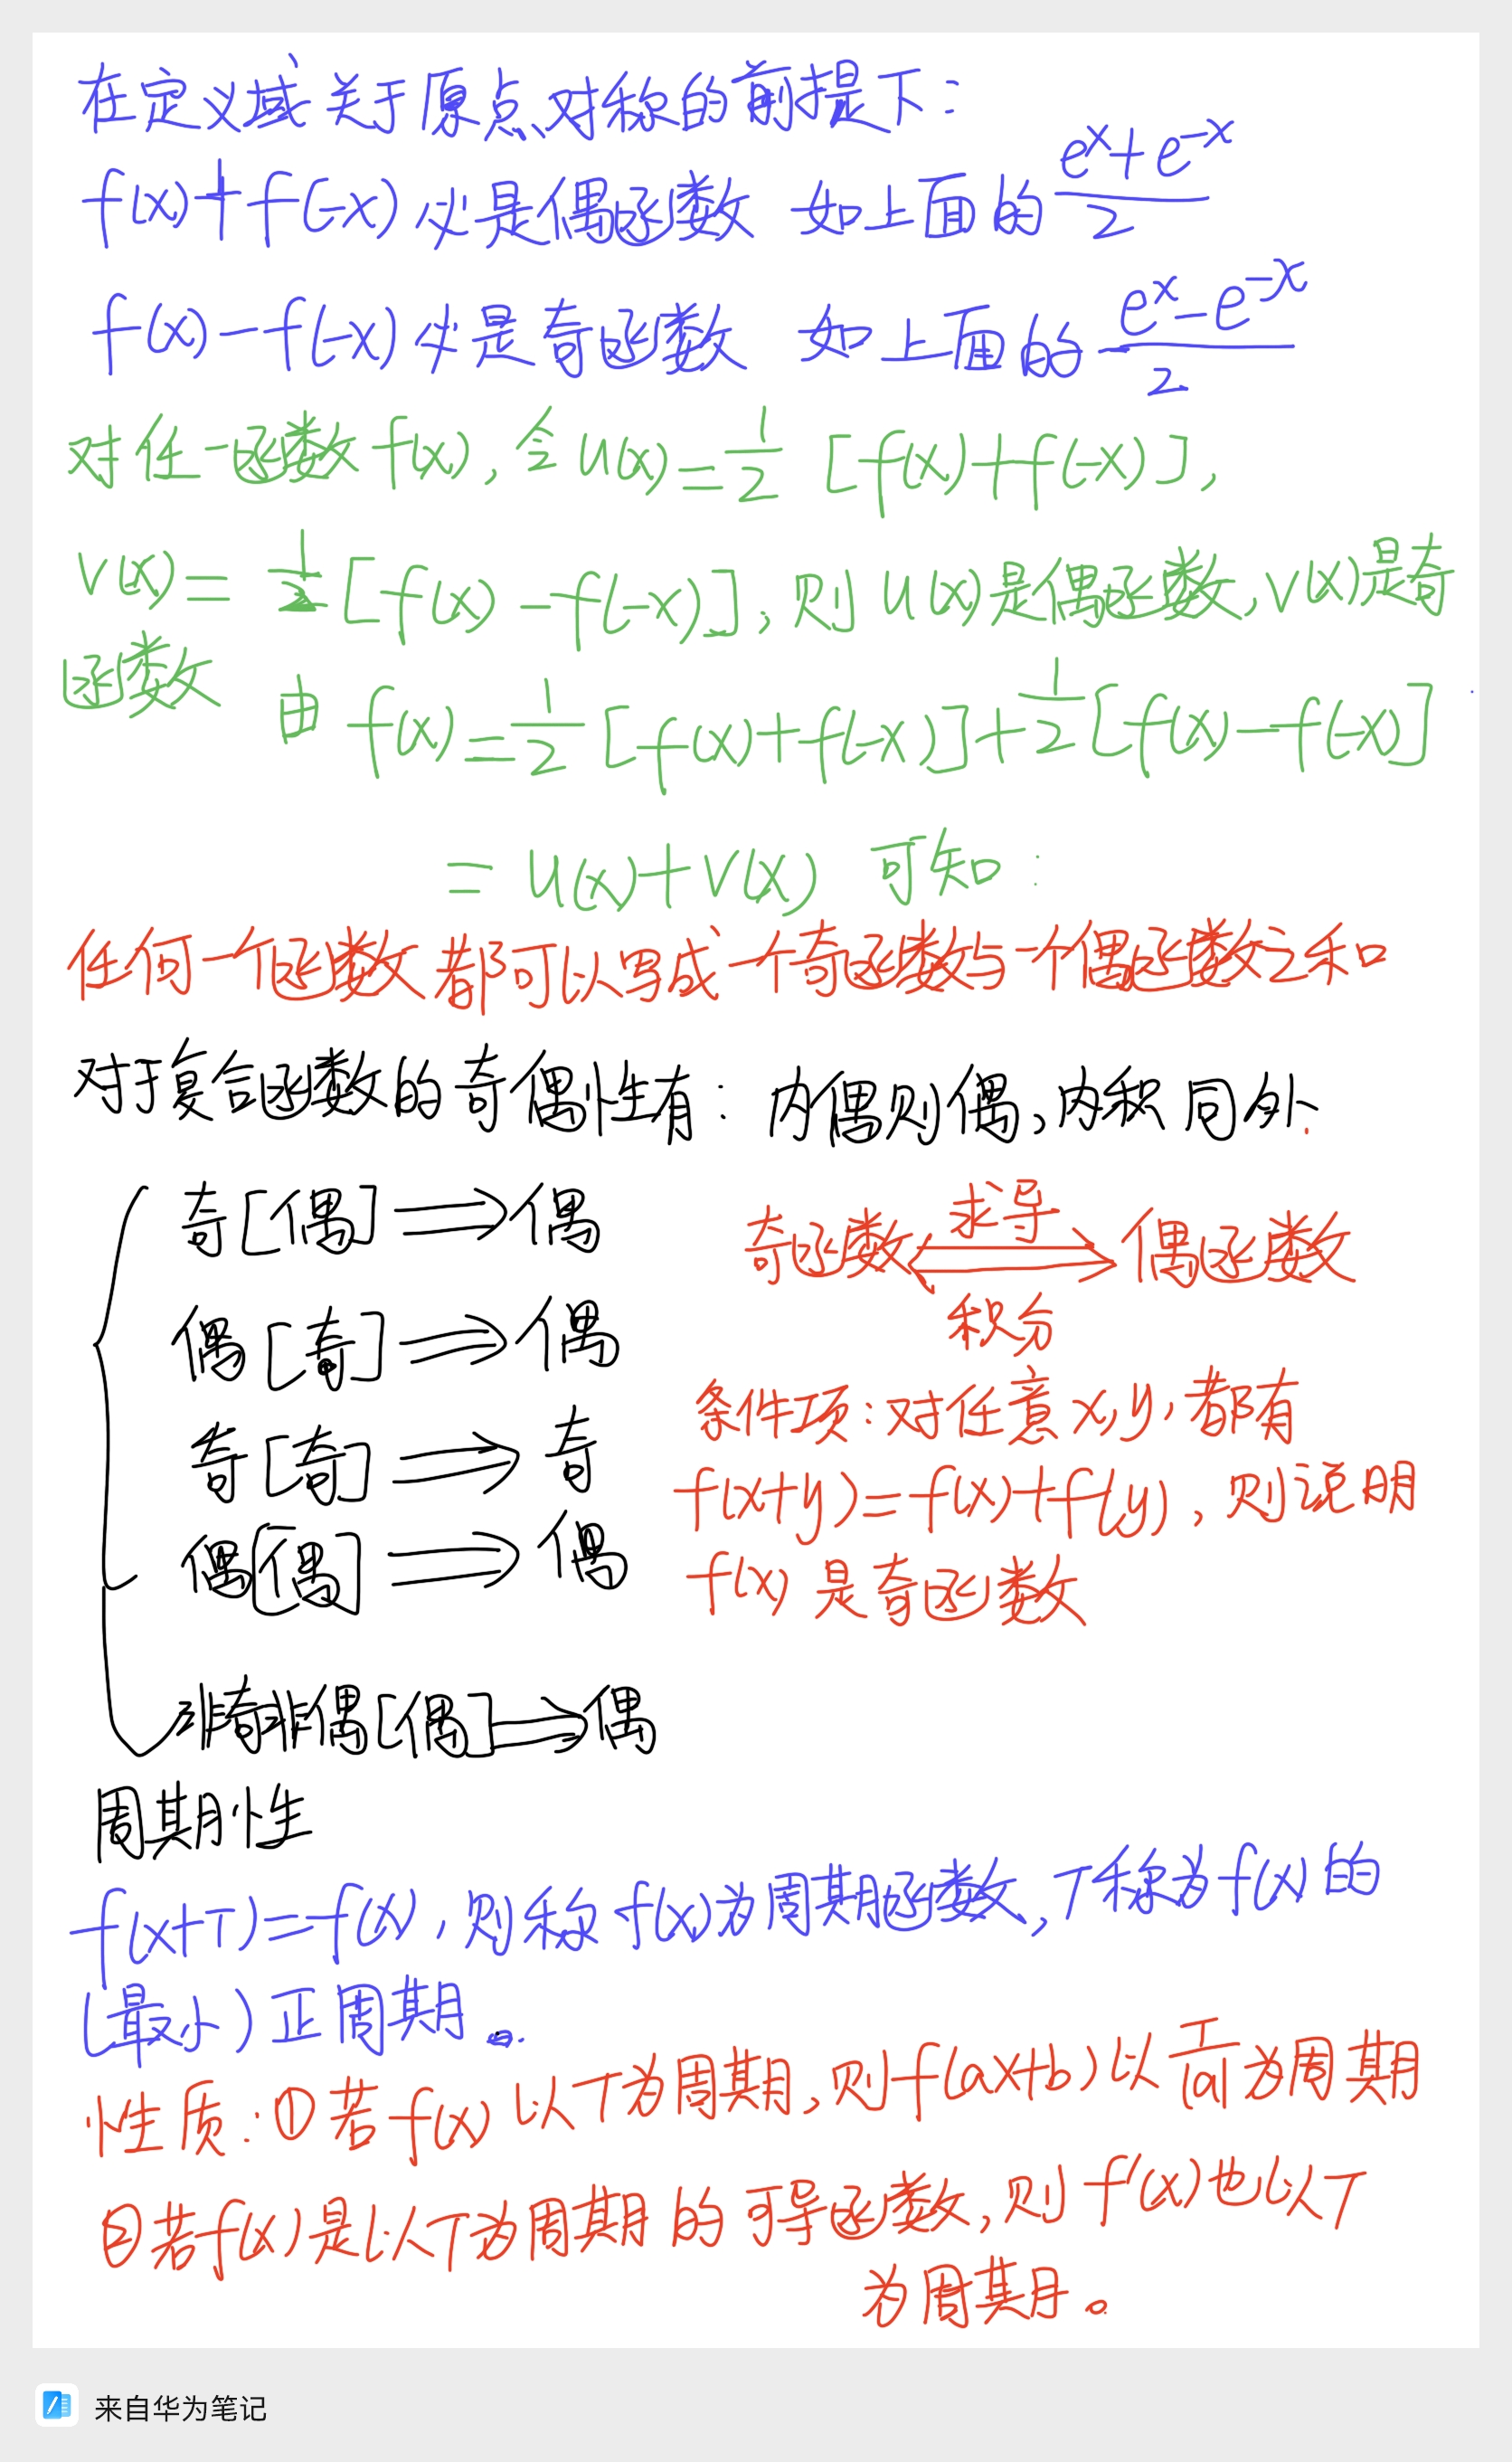 在定义域关于原点对称的前提下：
f(x)+f(-x)必是偶函数 如上面的 (e^x+e^-x)/2
f(x)-f(-x)必是奇函数 如上面的 (e^x-e^-x)/2
对任一函数f(x),令u(x)=1/2[f(x)+f(-x)],
v(x)=1/2[f(x)-f(-x)],则u(x)是偶函数,v(x)是奇
函数 由f(x)=1/2[f(x)+f(-x)]+1/2[f(x)-f(-x)]
=u(x)+v(x) 可知：
任何一个函数都可以写成一个奇函数与一个偶函数之和
对于复合函数的奇偶性有：内偶则偶,内积同外.
奇[偶]⟹偶
偶[奇]⟹偶
奇[奇]⟹奇
偶[偶]⟹偶
非奇非偶[偶]⟹偶
奇函数 求导 偶函数
积分
条件项：对任意x,y,都有
f(x+y)=f(x)+f(y),则说明
f(x)是奇函数
周期性
f(x+T)=f(x),则称f(x)为周期函数,T称为f(x)的
(最小)正周期。
性质：①若f(x)以T为周期,则f(ax+b)以T/|a|为周期
②若f(x)是以T为周期的可导函数,则f'(x)也以T
为周期。
来自华为笔记